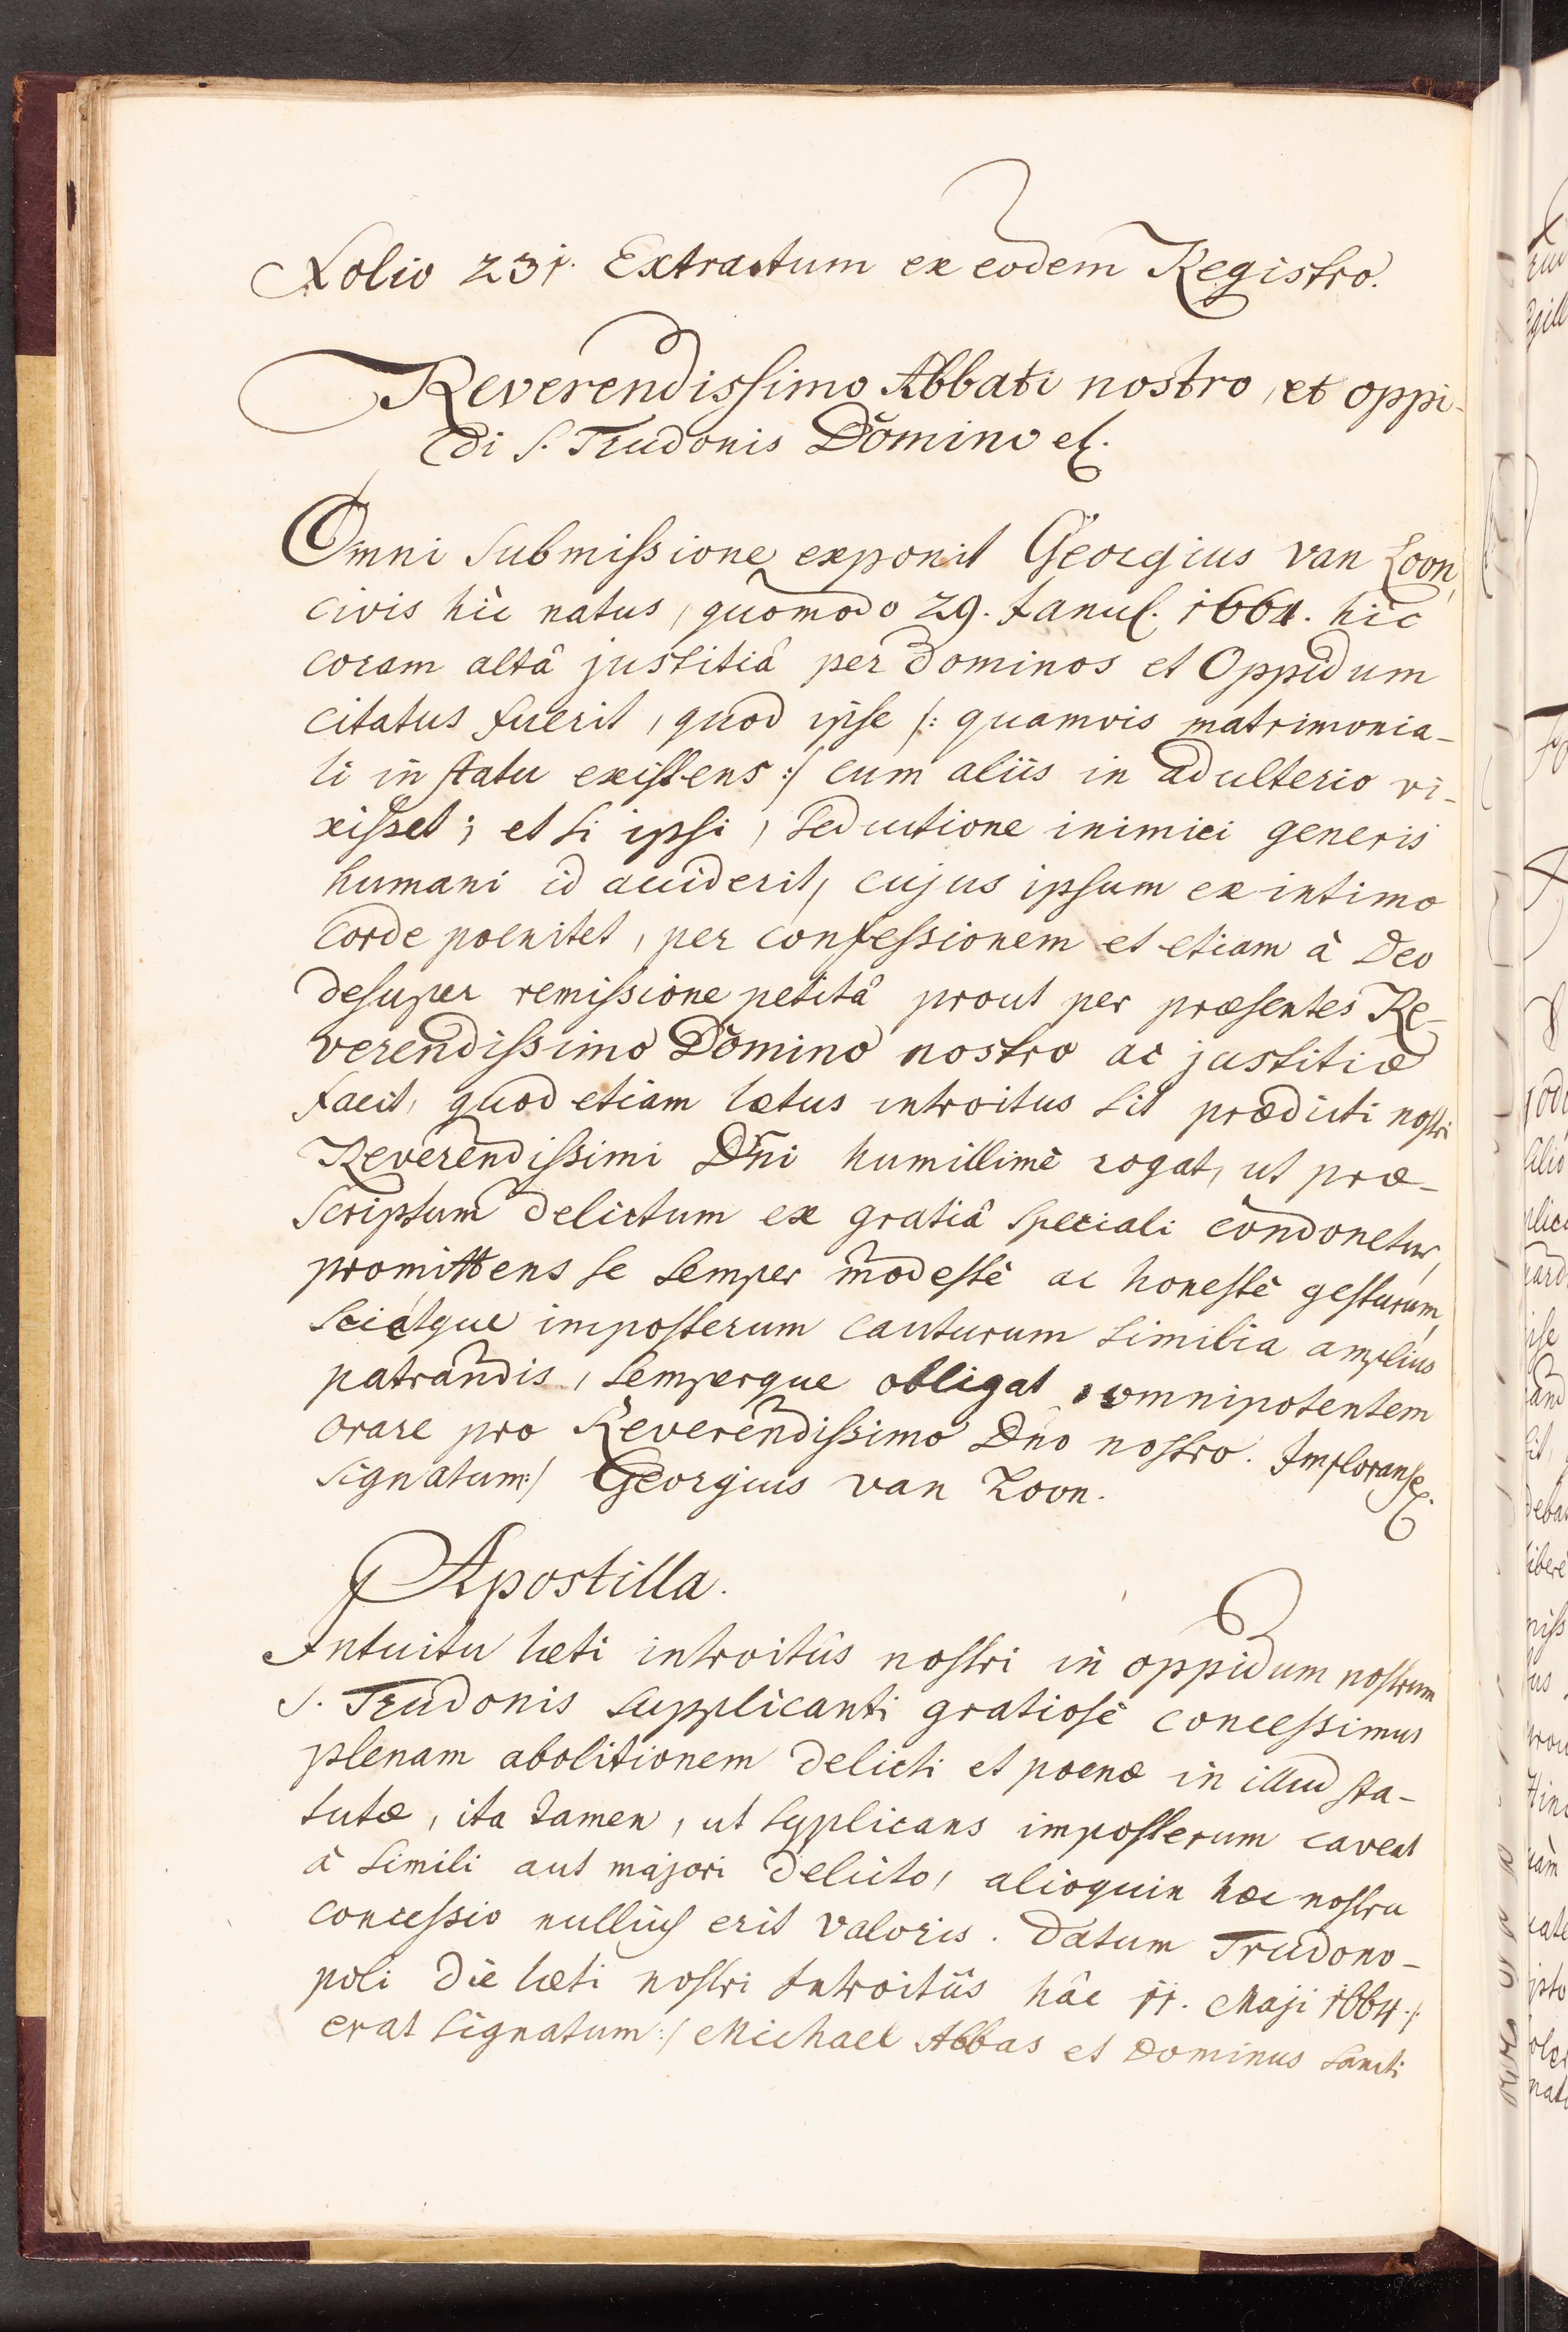 Folio 231. Extractum ex eodem Registro.
Reverendissimo Abbati nostro, et oppi-
di S. Trudonis Domino etc.
Omni submissione exponit Georgius van Loon,
civis hìc natus, quomodo 29. Januarii 1664. hìc
coram altâ justitiâ per Dominos et Oppidum
citatus fuerit, quod ipse /: quamvis matrimonia-
li in statu existens :/ cum aliis in adulterio vi-
xisset; et si ipsi, seductione inimici generis
humani id acciderit, cujus ipsum ex intimo
corde poenitet, per confessionem et etiam à Deo
desuper remissione petitâ prout per præsentes Re-
verendissimo Domino nostro ac justitiæ
facit, quod etiam lætus introitus sit prædicti nostri
Reverendissimi Dñi humillimè rogat, ut præ-
scriptum delictum ex gratiâ speciali condonetur,
promittens se semper modestè ac honestè gesturum,
imposterum cauturum similia amplius
patrandis, semperque obligat omnipotentem
orare pro Reverendissimo Dño nostro. Implorans etc.
signatum :/ Georgius van Loon.
Apostilla.
Intuitu læti introitûs nostri in oppidum nostrum
S. Trudonis supplicanti gratiosè concessimus
plenam abolitionem delicti et poenæ in illud sta-
tutæ, ita tamen, ut supplicans imposterum caveat
à simili aut majori delicto, alioquin hæc nostra
concessio nullius erit valoris. Datum Trudono-
poli die læti nostri Introitûs hâc 11. Maji 1664. /:
erat signatum :/ Michael Abbas et Dominus Sancti